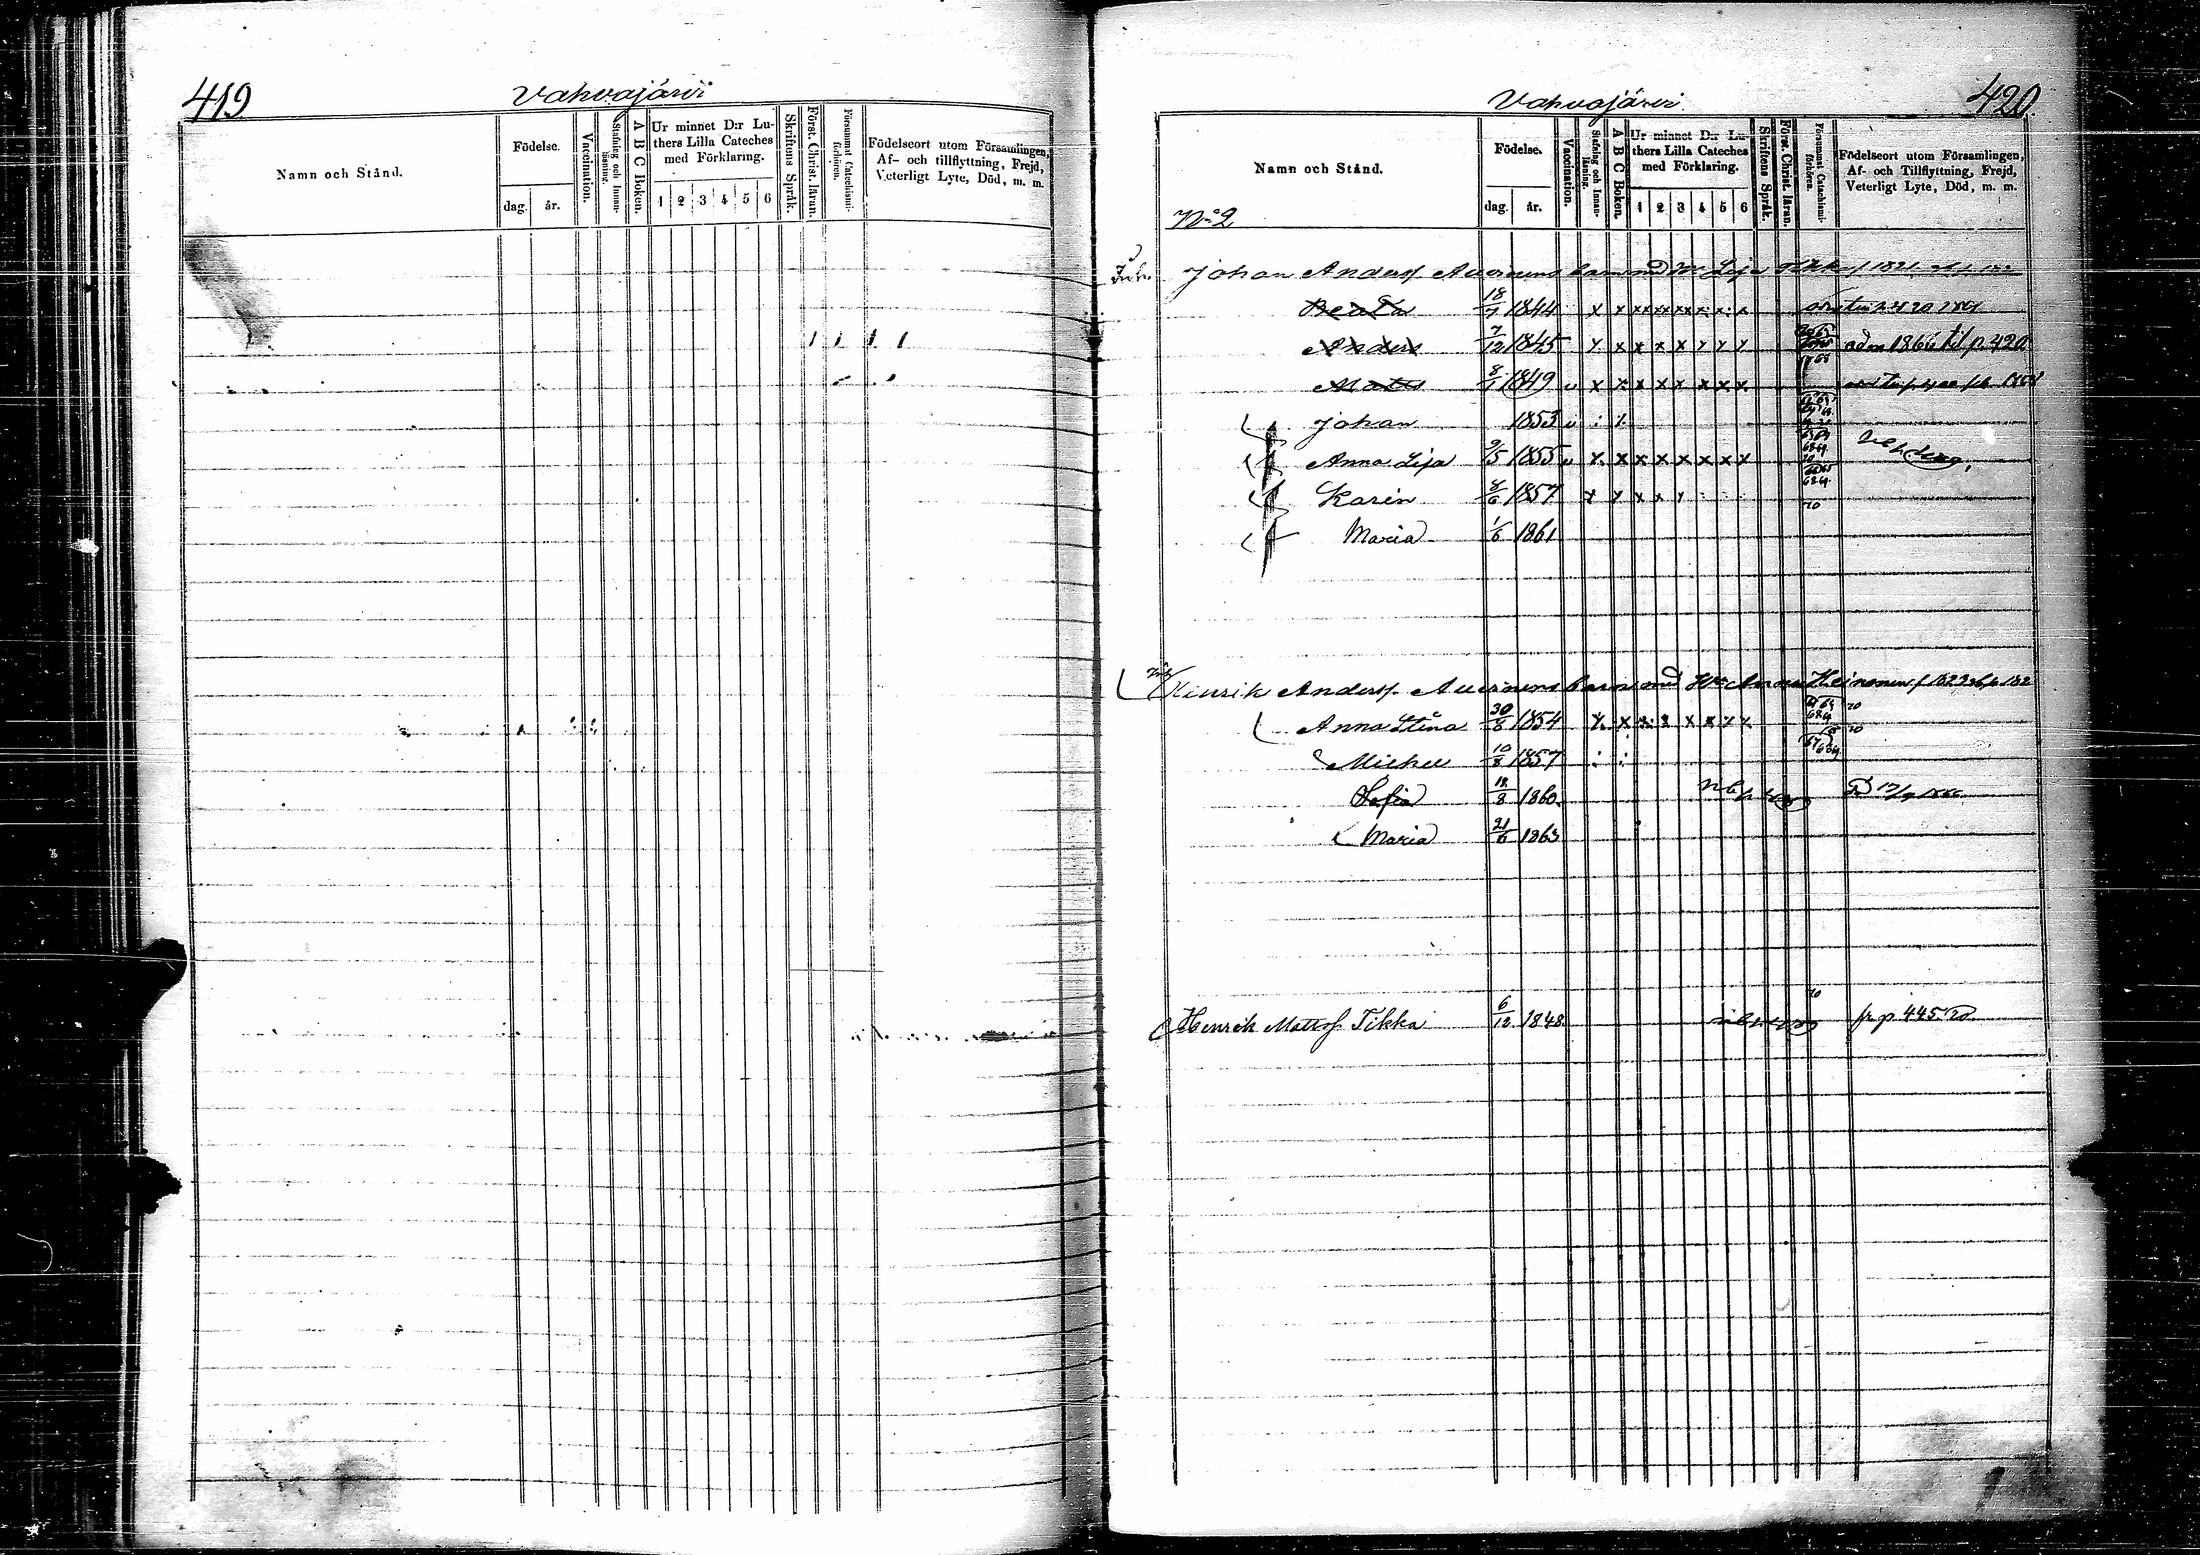 419
Vahvajärvi
Namn och Stånd.
Födelse.
dag. år.
Vaccination.
Stafning och Innanläsning.
A B C Boken.
Ur minnet D:r Luthers Lilla Cateches med Förklaring.
1 2 3 4 5 6
Skriftens Språk.
Först. Christ. läran.
Försummat Catechismiförhören.
Födelseort utom Församlingen,
Af- och tillflyttning, Frejd,
Veterligt Lyte, Död, m. m.
Vahvajärvi
420.
Namn och Stånd.
No 2
Födelse.
dag. år.
Vaccination.
Stafning och Innanläsning.
A B C Boken.
Ur minnet D:r Luthers Lilla Cateches med Förklaring.
1 2 3 4 5 6
Skriftens Språk.
Först. Christ. läran.
Försummat Catechismiförhören.
Födelseort utom Församlingen,
Af- och Tillflyttning, Frejd,
Veterligt Lyte, Död, m. m.
Johan Andersf. Auvinens barn md Lisa Tikka f. 1821
Beata 18/7 1844 x x x x x x x x
Anders 7/12 1845 x x x x x x x x adm 1866 til p. 420
Mats 8/1 1849 v x x x x x x x x
Johan 1853 v
Anna Lisa 9/5 1855 v x x x x x x x x
Karin 8/6 1857 x x x x x 70
Maria 1/6 1861
Hinrik Andersf. Auvinens barn md Anna Heinonen f. 1823
Anna Stina 30/8 1854 x x x x x x x x 70
Michel 10/8 1857
Sofia 12/8 1860 D
Maria 21/6 1863
Henrik Mattsf. Tikka 6/12 1848 fr p 445. 70